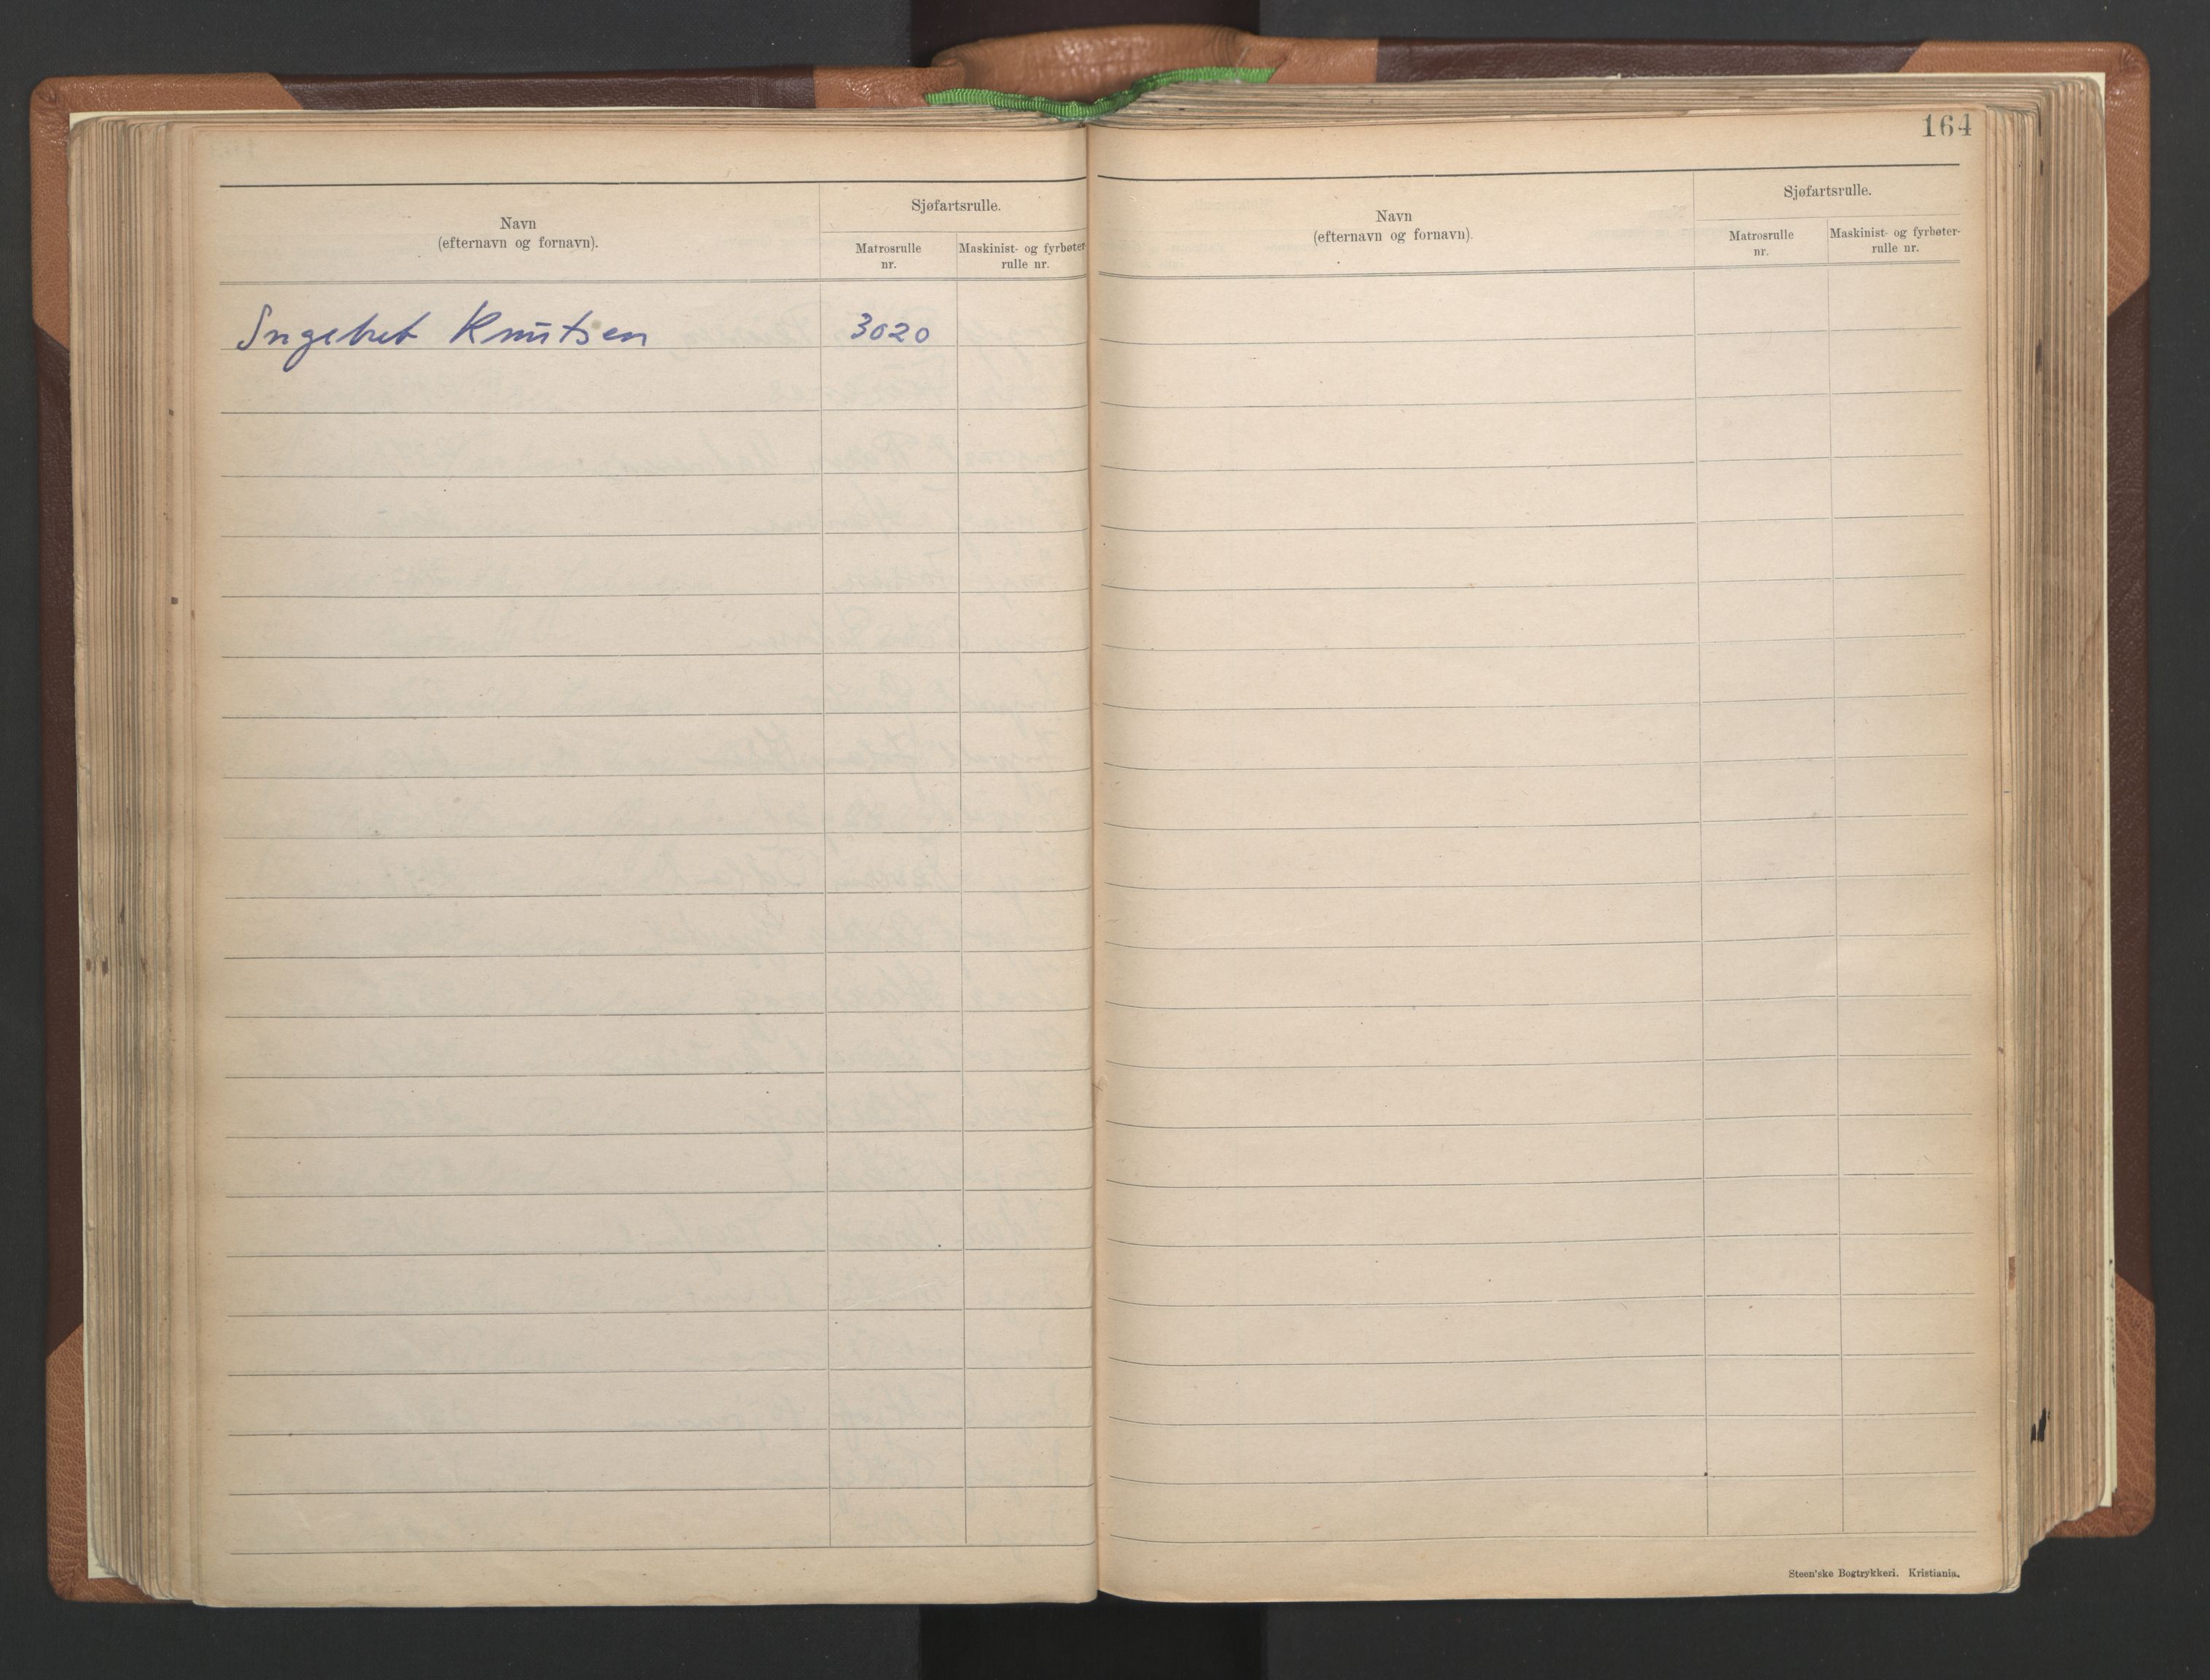 164
Navn
(efternavn og fornavn).
Sjøfartsrulle.
Matrosrulle
nr.
Maskinist- og fyrbøter
rulle nr.
Ingebret Knutsen 3020
Navn
(efternavn og fornavn).
Sjøfartsrulle.
Matrosrulle
nr.
Maskinist- og fyrbøter-
rulle nr.
Steen'ske Bogtrykkeri. Kristiania.